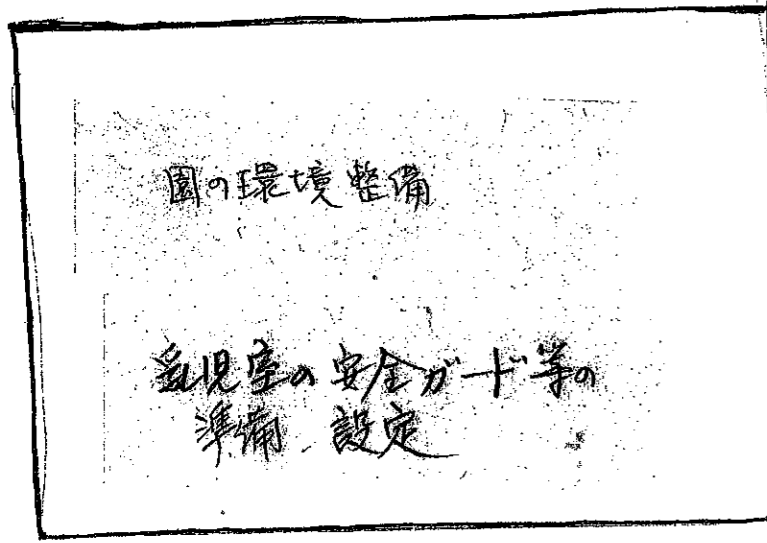 園の環境整備
乳児室の安全ガード等の
準備 設定